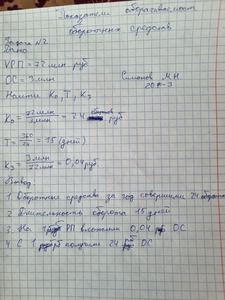 Показатели оборачиваемости
оборотных средств
Задача №2
Дано
VРП = 72 млн руб
ОС = 3 млн
Симонов М.Н
Найти Ко, Т, Кз
Ко = 72 млн / 3 млн = 24 руб
Т = 360 / 24 = 15 (дней)
Кз = 3 млн / 72 млн = 0,04 руб
Вывод
1 Оборотные средства за год совершили 24 оборота
2 Длительность оборота 15 дней
3 На 1 руб РП вложили 0,04 руб ОС
4 С 1 руб получили 24 руб ОС